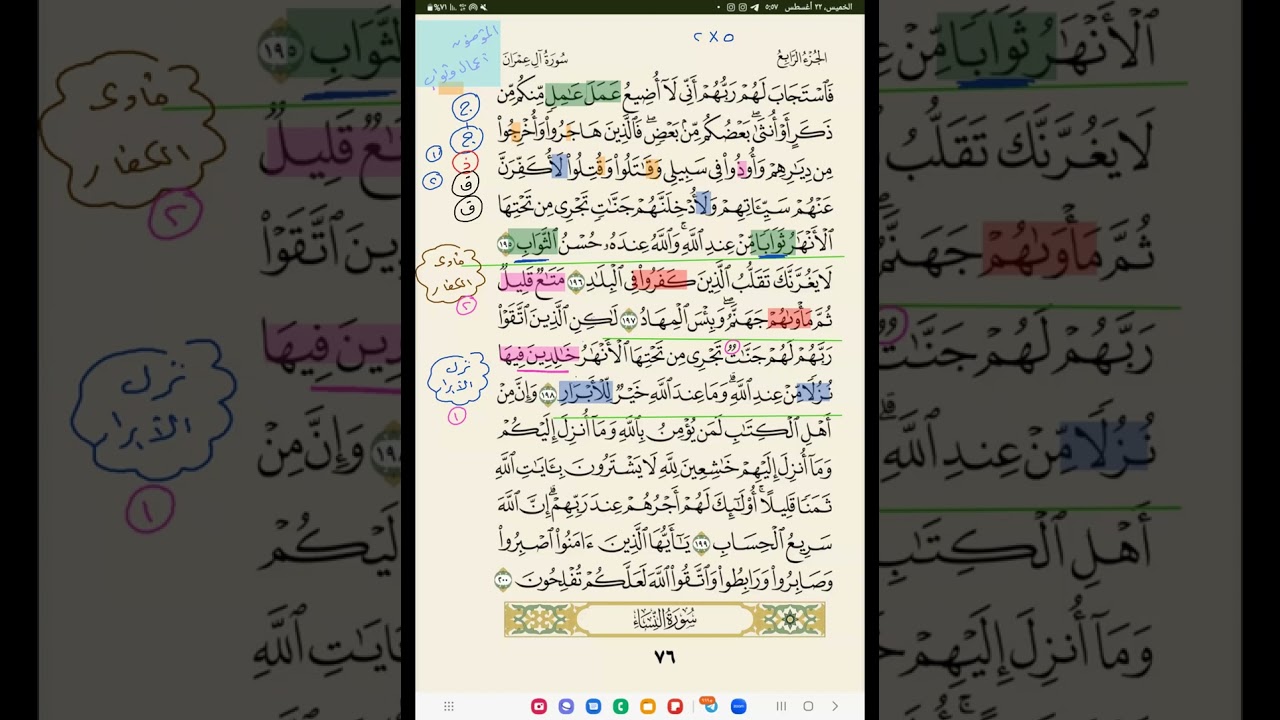 الخميس، ٢٢ أغسطس ٥:٥٧
٪٧١
٢X٥
الجُزْءُ الرَّابِعُ
سُورَةُ آلِ عِمْرَانَ
المؤمنون
أعمال وثواب
فَٱسْتَجَابَ لَهُمْ رَبُّهُمْ أَنِّي لَآ أُضِيعُ عَمَلَ عَٰمِلٖ مِّنكُم مِّن
ذَكَرٍ أَوْ أُنثَىٰۖ بَعْضُكُم مِّنۢ بَعْضٖۖ فَٱلَّذِينَ هَاجَرُواْ وَأُخْرِجُواْ
مِن دِيَٰرِهِمْ وَأُوذُواْ فِي سَبِيلِي وَقَٰتَلُواْ وَقُتِلُواْ لَأُكَفِّرَنَّ
عَنْهُمْ سَيِّـَٔاتِهِمْ وَلَأُدْخِلَنَّهُمْ جَنَّٰتٖ تَجْرِي مِن تَحْتِهَا
ٱلْأَنْهَٰرُ ثَوَابٗا مِّنْ عِندِ ٱللَّهِۚ وَٱللَّهُ عِندَهُۥ حُسْنُ ٱلثَّوَابِ ١٩٥
لَا يَغُرَّنَّكَ تَقَلُّبُ ٱلَّذِينَ كَفَرُواْ فِي ٱلْبِلَٰدِ ١٩٦ مَتَٰعٞ قَلِيلٞ
ثُمَّ مَأْوَىٰهُمْ جَهَنَّمُۖ وَبِئْسَ ٱلْمِهَادُ ١٩٧ لَٰكِنِ ٱلَّذِينَ ٱتَّقَوْاْ
رَبَّهُمْ لَهُمْ جَنَّٰتٞ تَجْرِي مِن تَحْتِهَا ٱلْأَنْهَٰرُ خَٰلِدِينَ فِيهَا
نُزُلٗا مِّنْ عِندِ ٱللَّهِۗ وَمَا عِندَ ٱللَّهِ خَيْرٞ لِّلْأَبْرَارِ ١٩٨ وَإِنَّ مِنْ
أَهْلِ ٱلْكِتَٰبِ لَمَن يُؤْمِنُ بِٱللَّهِ وَمَآ أُنزِلَ إِلَيْكُمْ
وَمَآ أُنزِلَ إِلَيْهِمْ خَٰشِعِينَ لِلَّهِ لَا يَشْتَرُونَ بِـَٔايَٰتِ ٱللَّهِ
ثَمَنٗا قَلِيلًاۚ أُوْلَٰٓئِكَ لَهُمْ أَجْرُهُمْ عِندَ رَبِّهِمْۗ إِنَّ ٱللَّهَ
سَرِيعُ ٱلْحِسَابِ ١٩٩ يَٰٓأَيُّهَا ٱلَّذِينَ ءَامَنُواْ ٱصْبِرُواْ
وَصَابِرُواْ وَرَابِطُواْ وَٱتَّقُواْ ٱللَّهَ لَعَلَّكُمْ تُفْلِحُونَ ٢٠٠
سُورَةُ النِّسَاءِ
٧٦
ج
ج
١
ق
٢
ق
مأوى
الكفار
٢
نزل
الأبرار
١